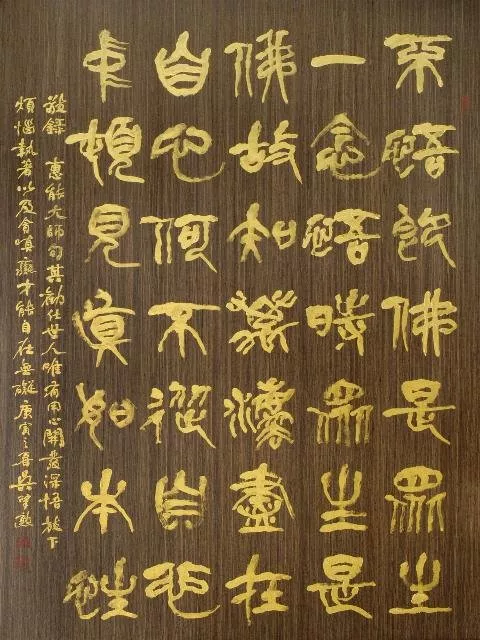 不悟即佛是眾生
一念悟時眾生是
佛故知萬法盡在
自心何不從自心
中頓見真如本性
敬錄 惠能大師句其勸住世人唯有用心開發深悟放下
煩惱執著以及貪嗔癡才能自在無礙庚寅之春吳